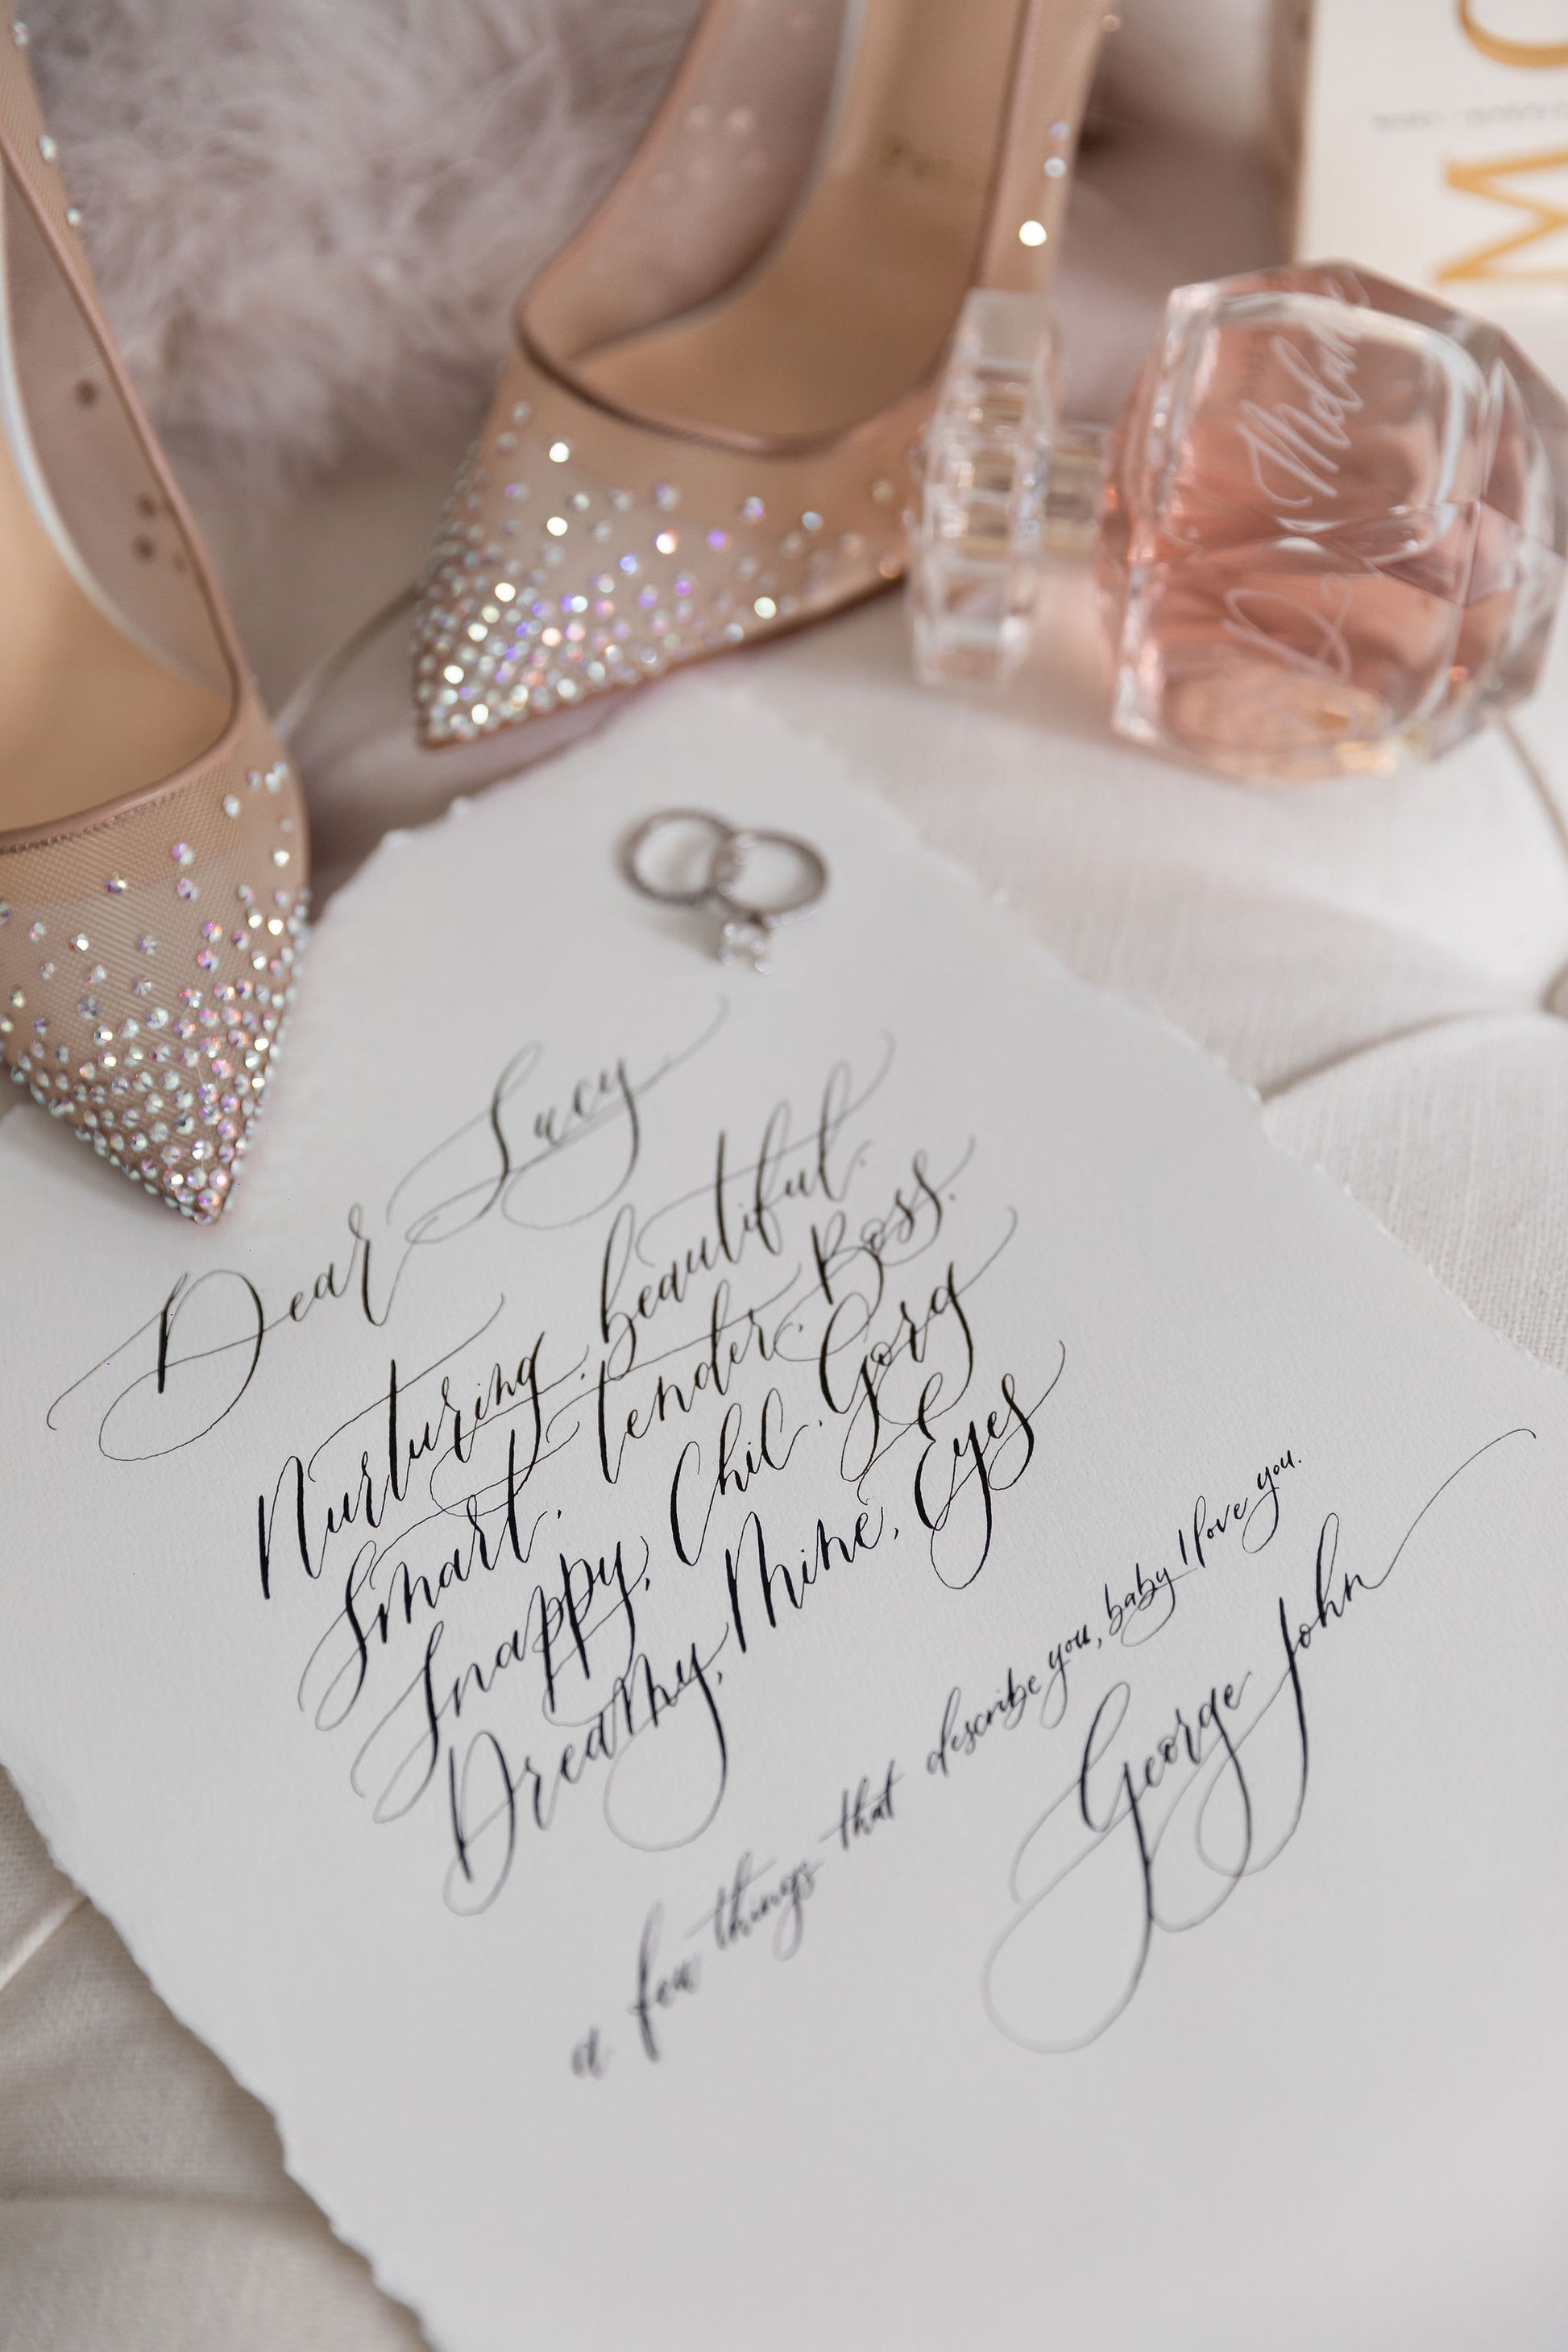 Dear Lucy
Nurturing, beautiful.
Smart, Tender. Boss.
Snappy, Chic. Gorg
Dreamy, Mine, Eyes
a few things that describe you, baby I love you.
George John